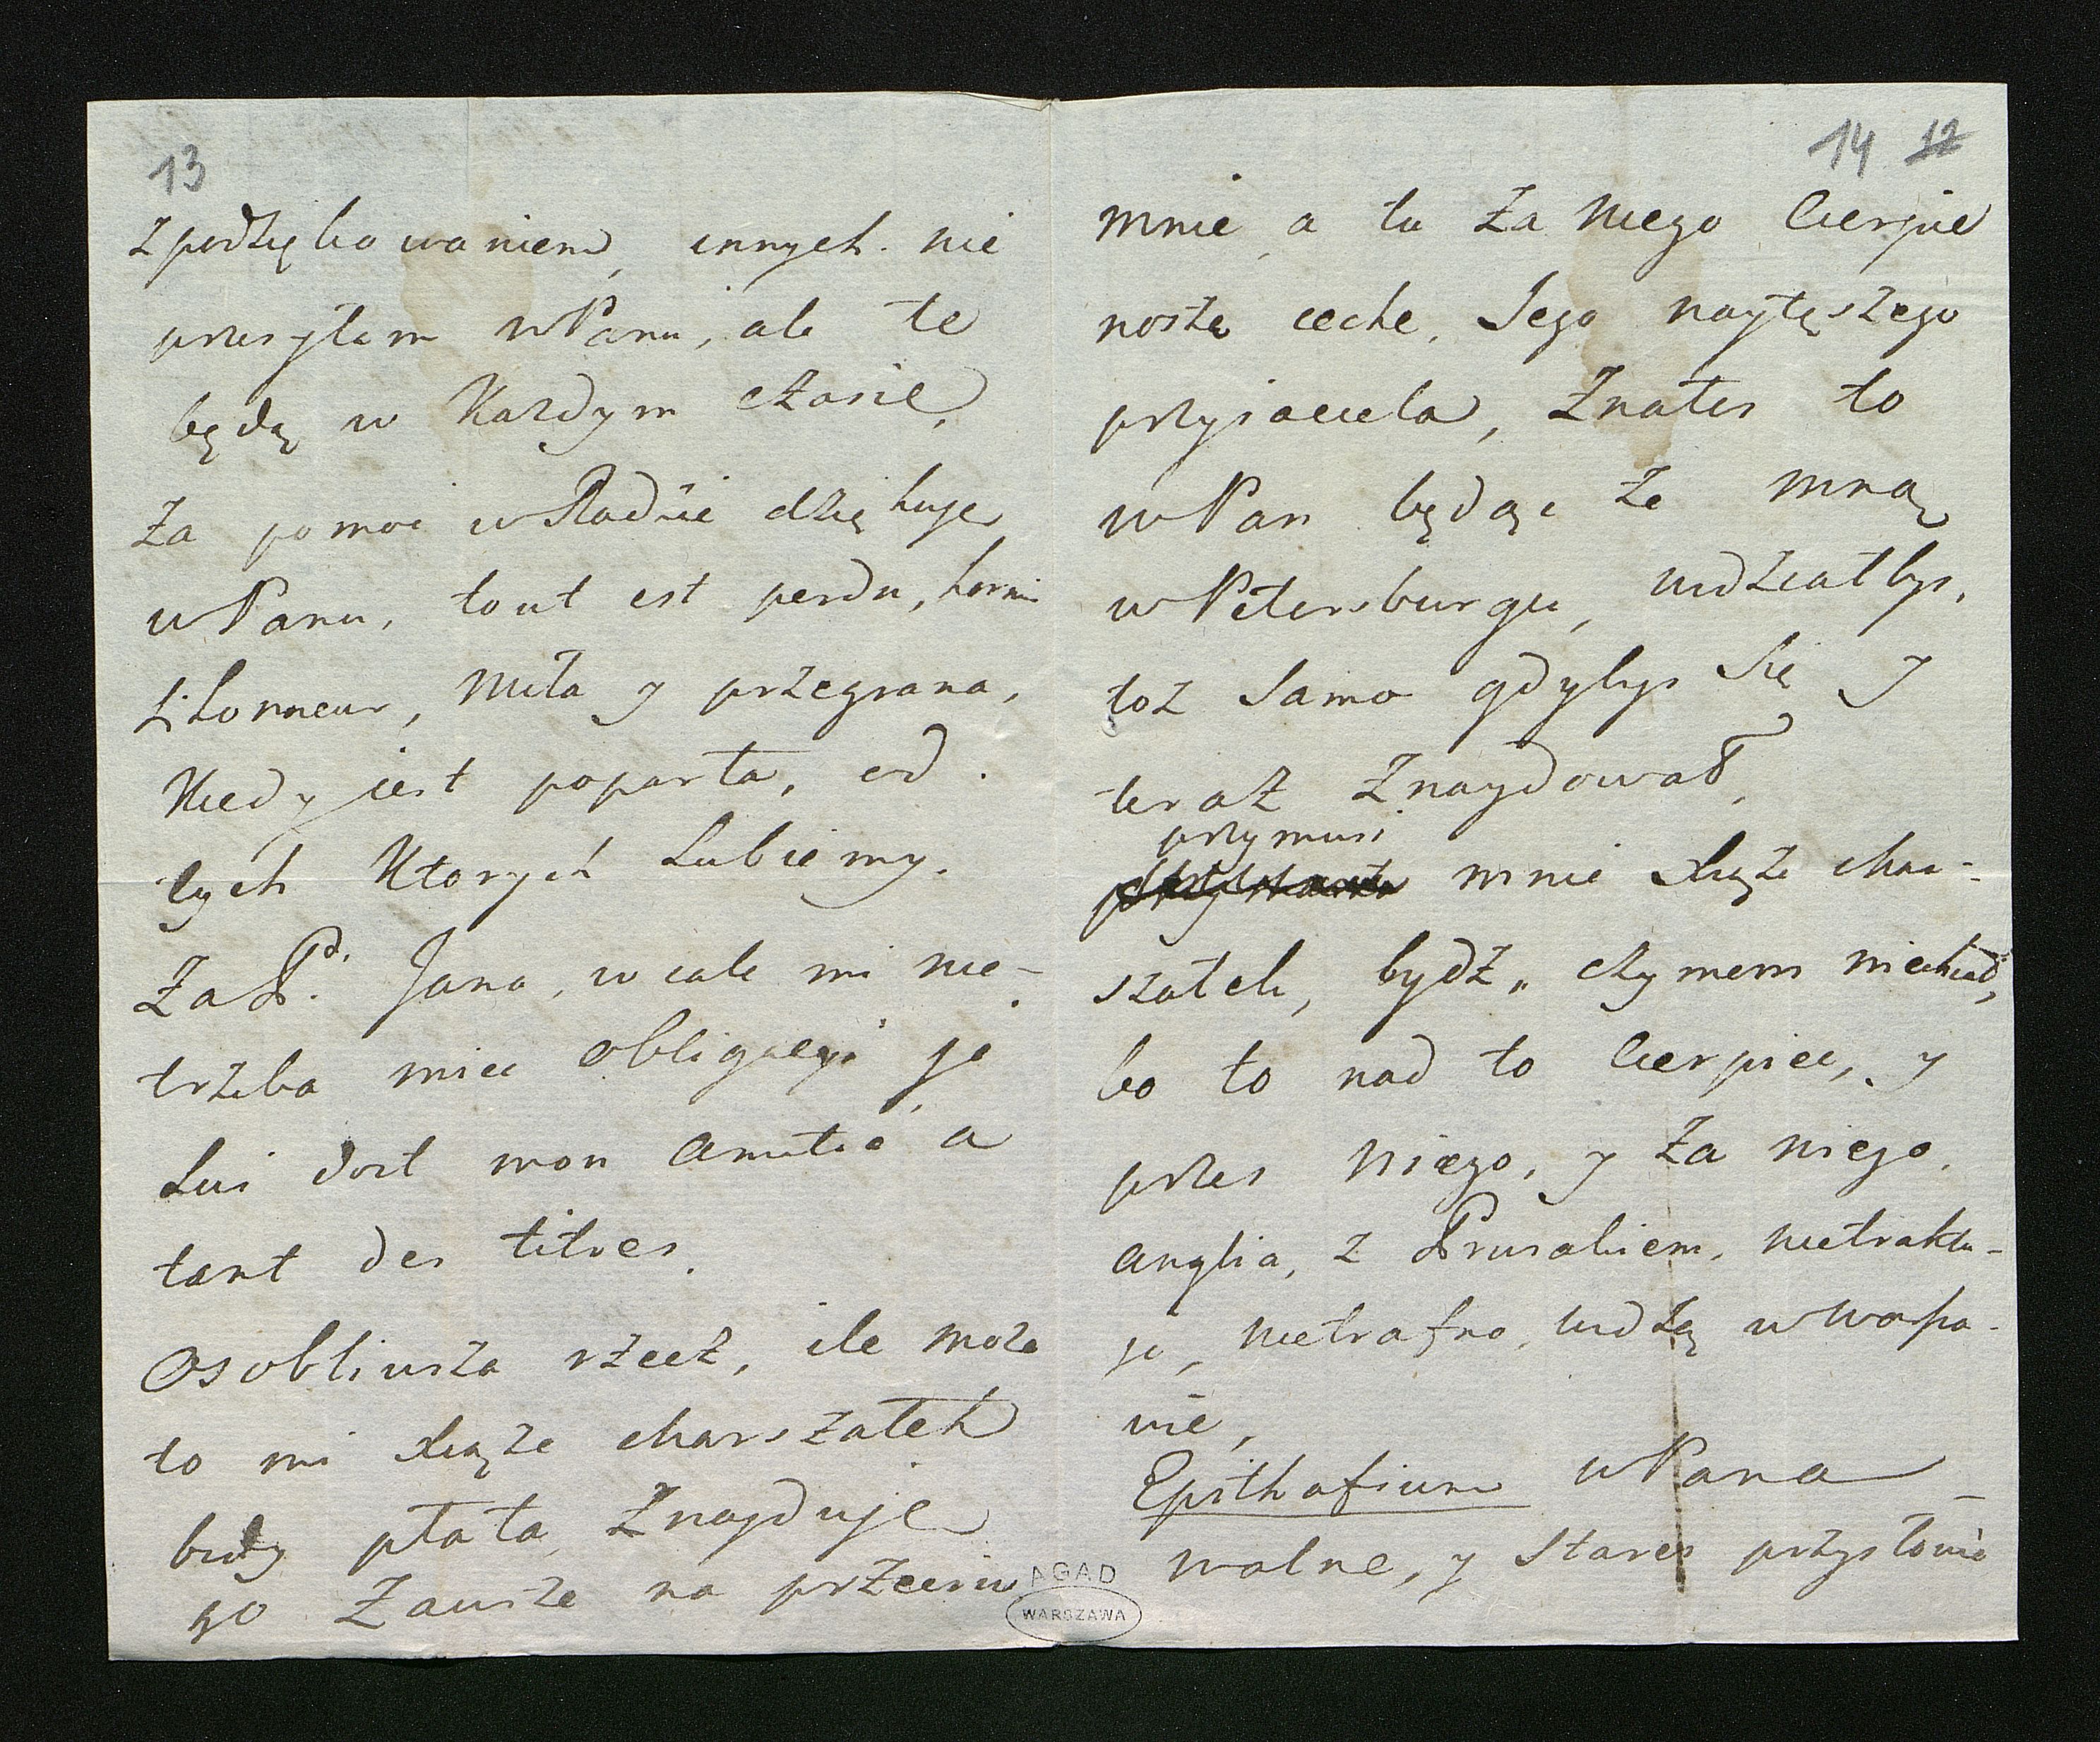 13
z podziękowaniem, innych nie
przesyłam wPanu, ale te
będą w Każdym czasie,
Za pomoc w Radzie dziękuję
wPanu, tout est perdu, hormis
L'honneur, Miła y przegrana,
Kiedy jest poparta, od
tych Ktorych Lubiemy.
Za P. Jana, w cale mi nie-
trzeba miec obligacyi je
Lui doit mon amitie a
tant des titres.
Osobliwsza rzecz, ile może
to mi Xiąże Marszałek
płata, Znayduje
go Zawsze na przeciw
14 12
mnie, a tu Za Niego Cierpie
nosze ceche, Jego naytęższego
przyiaciela, Znałes to
wPan będąc Ze mną
w Petersburgu, widziałbys,
toż Samo gdybys Się y
teraz Znaydował,
przymusi
mnie Xiąże Mar-
szałek, bydź czymem niechciał,
bo to nad to Cierpiec, y
przes Niego, y Za niego.
Anglia, z Prusakiem, nietraktu-
je, nietrafno, widzą w Warsza-
wie,
Epithafium wPana
walne, y Stare przysłowie
AGAD
WARSZAWA